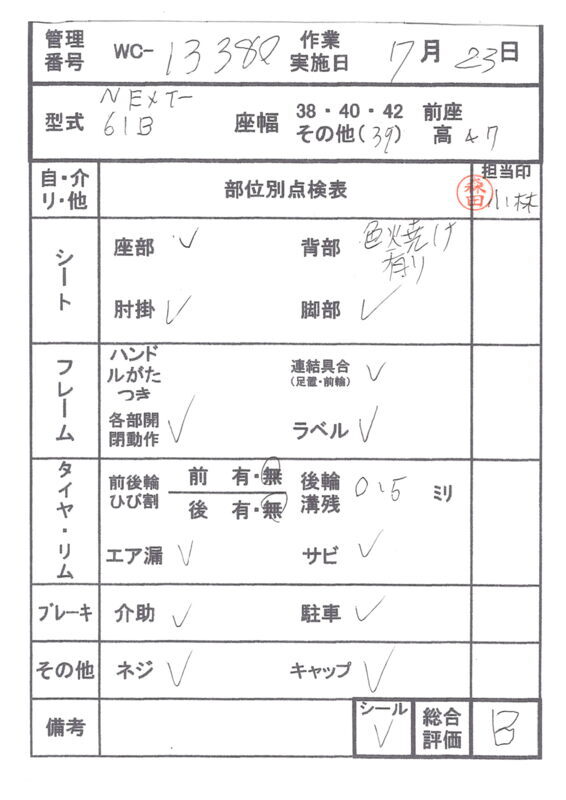 管理番号 WC-13380 作業実施日 17月23日
型式 NEXT-61B 座幅 38・40・42 その他(39) 前座高 47
自・介リ・他 部位別点検表 担当印 森田 小林
シート 座部 ✓ 背部 色焼け有り
肘掛 ✓ 脚部 ✓
フレーム ハンドルがたつき 連結具合(足置・前輪) ✓
各部開閉動作 ✓ ラベル ✓
タイヤ・リム 前後輪ひび割 前 有・無 後 有・無 後輪溝残 0.5 ミリ
エア漏 ✓ サビ ✓
ブレーキ 介助 ✓ 駐車 ✓
その他 ネジ ✓ キャップ ✓
備考 シール ✓ 総合評価 B